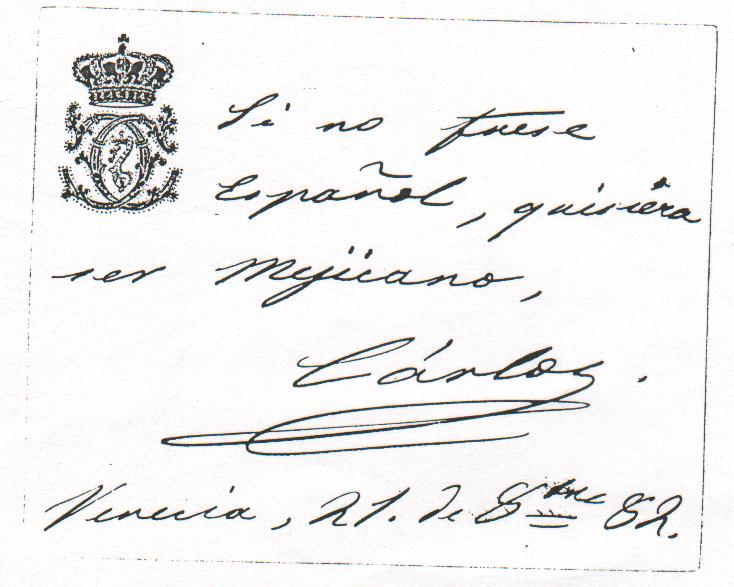 Si no fuese
Español, quisiera
ser Mejicano,
Cárlos.
Venecia, 21. de 8bre 82.